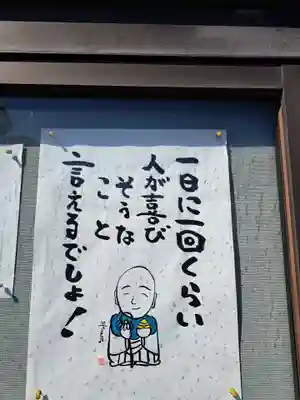 一日に一回くらい
人が喜び
そうな
こと
言えるでしょ!